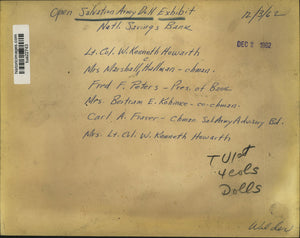 Open Salvation Army Doll Exhibit
Natl. Savings Bank
12/3/62
DEC 2 1962
Lt. Col. W. Kenneth Howarth
Mrs Marshall C Hallman - chman.
Fred F. Peters - Pres. of Bank
Mrs. Bertram E. - co-chman
Carl A. Fraser - Chman Sal Army Advisory Bd.
Mrs. Lt. Col. W. Kenneth Howarth
TU 1st
4 cols
Dolls